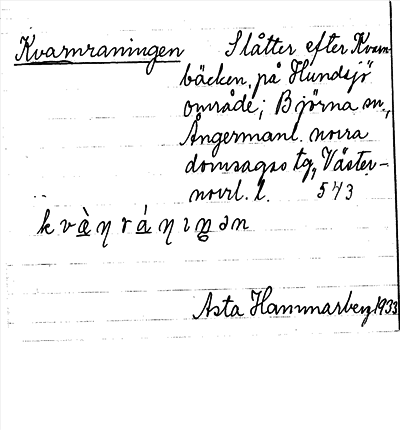 Kvarnraningen Slåtter efter Kvarn-
bäcken på Hundsjö
område; Björna sn.,
Ångermanl. norra
domsagas tg, Väster-
norrl. l. 543
Asta Hammarberg 1933